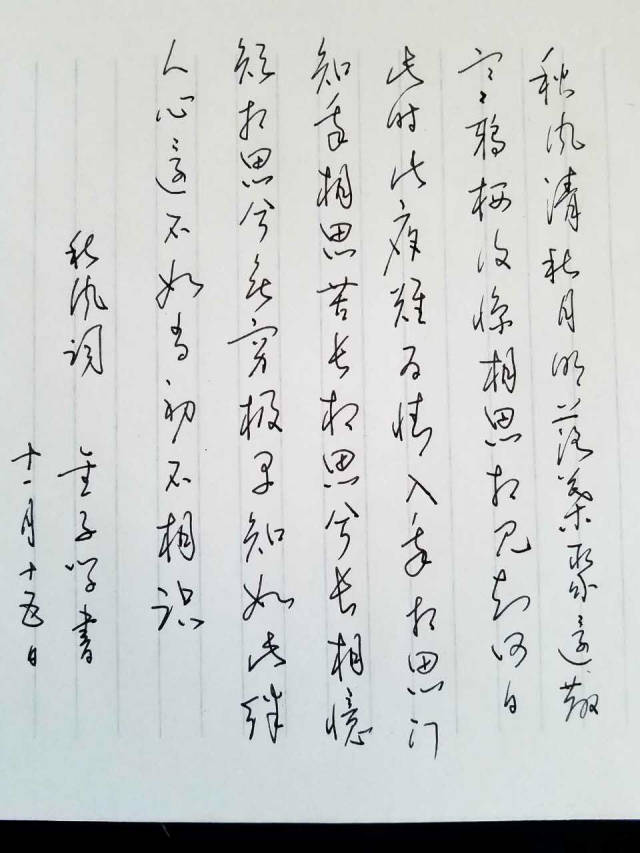 秋风清秋月明落葉聚还散
寒鸦栖复惊相思相见知何日
此时此夜难为情入我相思门
知我相思苦长相思兮长相憶
短相思兮无穷极早知如此绊
人心还不如当初不相识
秋风词 子学书
十一月十五日